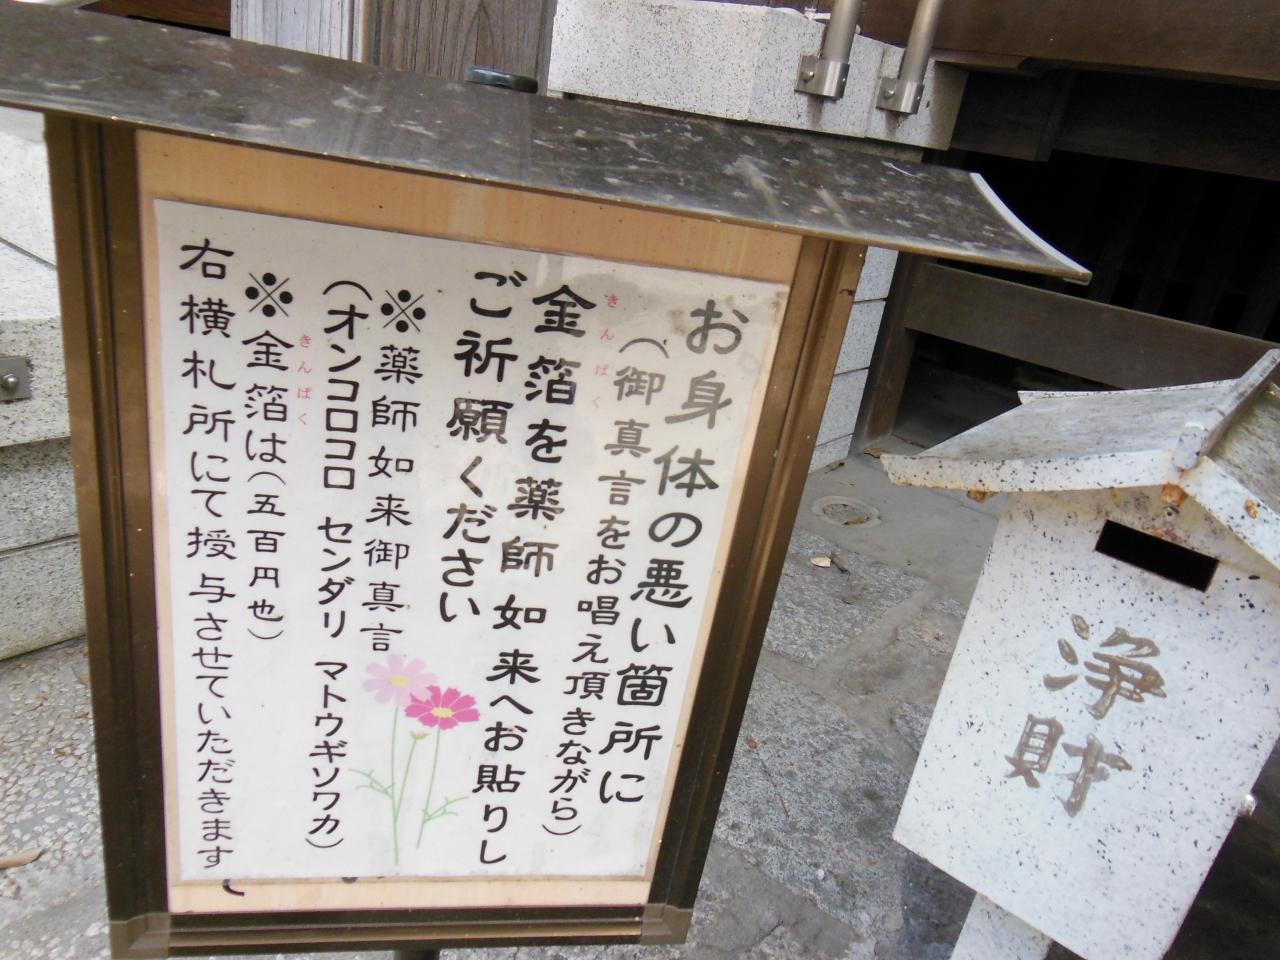 お身体の悪い箇所に
（御真言をお唱え頂きながら）
きんぱく
金箔を薬師如来へお貼りし
ご祈願ください
※薬師如来御真言
（オンコロコロ センダリ マトウギソワカ）
きんぱく
※金箔は（五百円也）
右横札所にて授与させていただきます
浄財